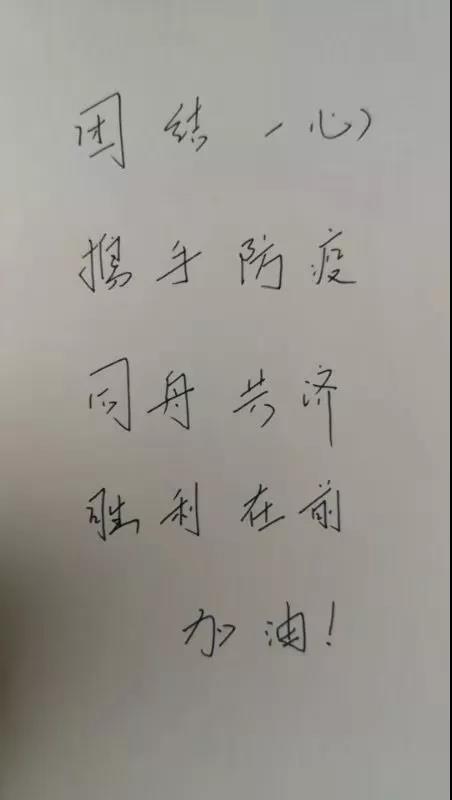 团结一心
携手防疫
同舟共济
胜利在前
加油!